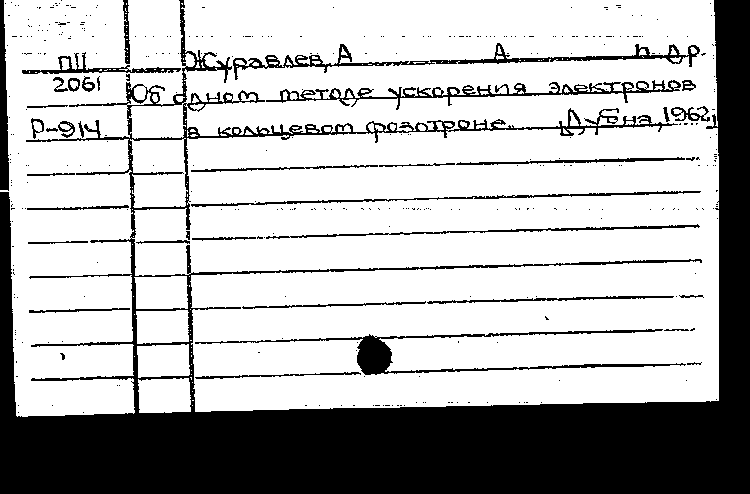 ПII Журавлев, А А и др.
2061 Об одном методе ускорения электронов
Р-914 в кольцевом фазотроне. Дубна, 1962,